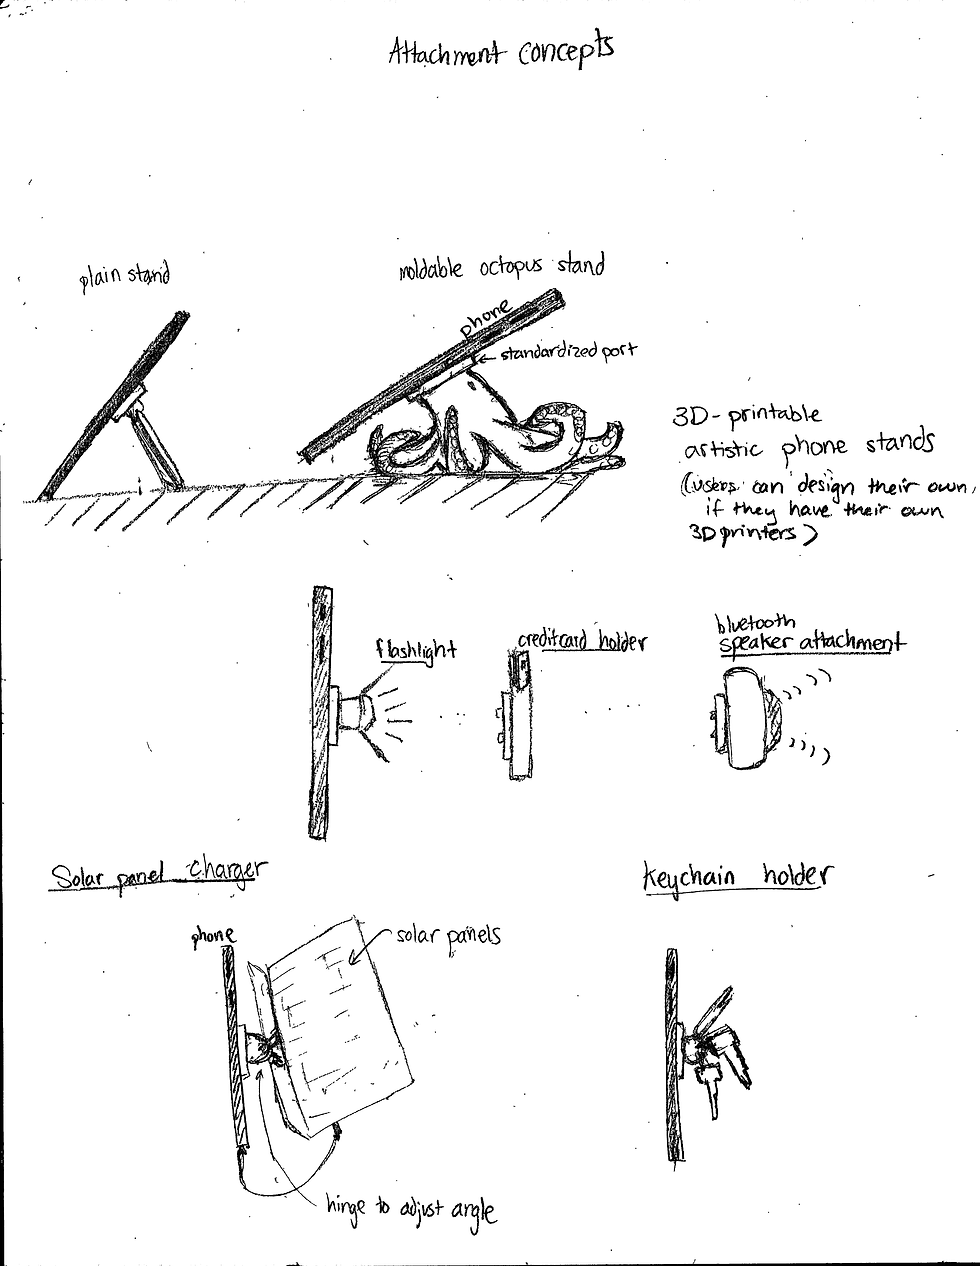 Attachment concepts
plain stand
moldable octopus stand
phone
standardized port
3D-printable
artistic phone stands
(users can design their own,
if they have their own
3D printers)
flashlight
creditcard holder
bluetooth
speaker attachment
Solar panel charger
keychain holder
phone
solar panels
hinge to adjust angle